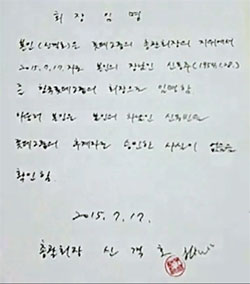 회장임명
본인(신격호)은 롯데그룹의 총괄회장의 지위에서
2015.7.17.자로 본인의 장남인 신동주(1954.
를 한국롯데그룹의 회장으로 임명함.
아울러 본인은 본인의 차남인 신동빈을
롯데그룹의 후계자로 승인한 사실이 없음을
확인함.
2015.7.17.
총괄회장 신격호